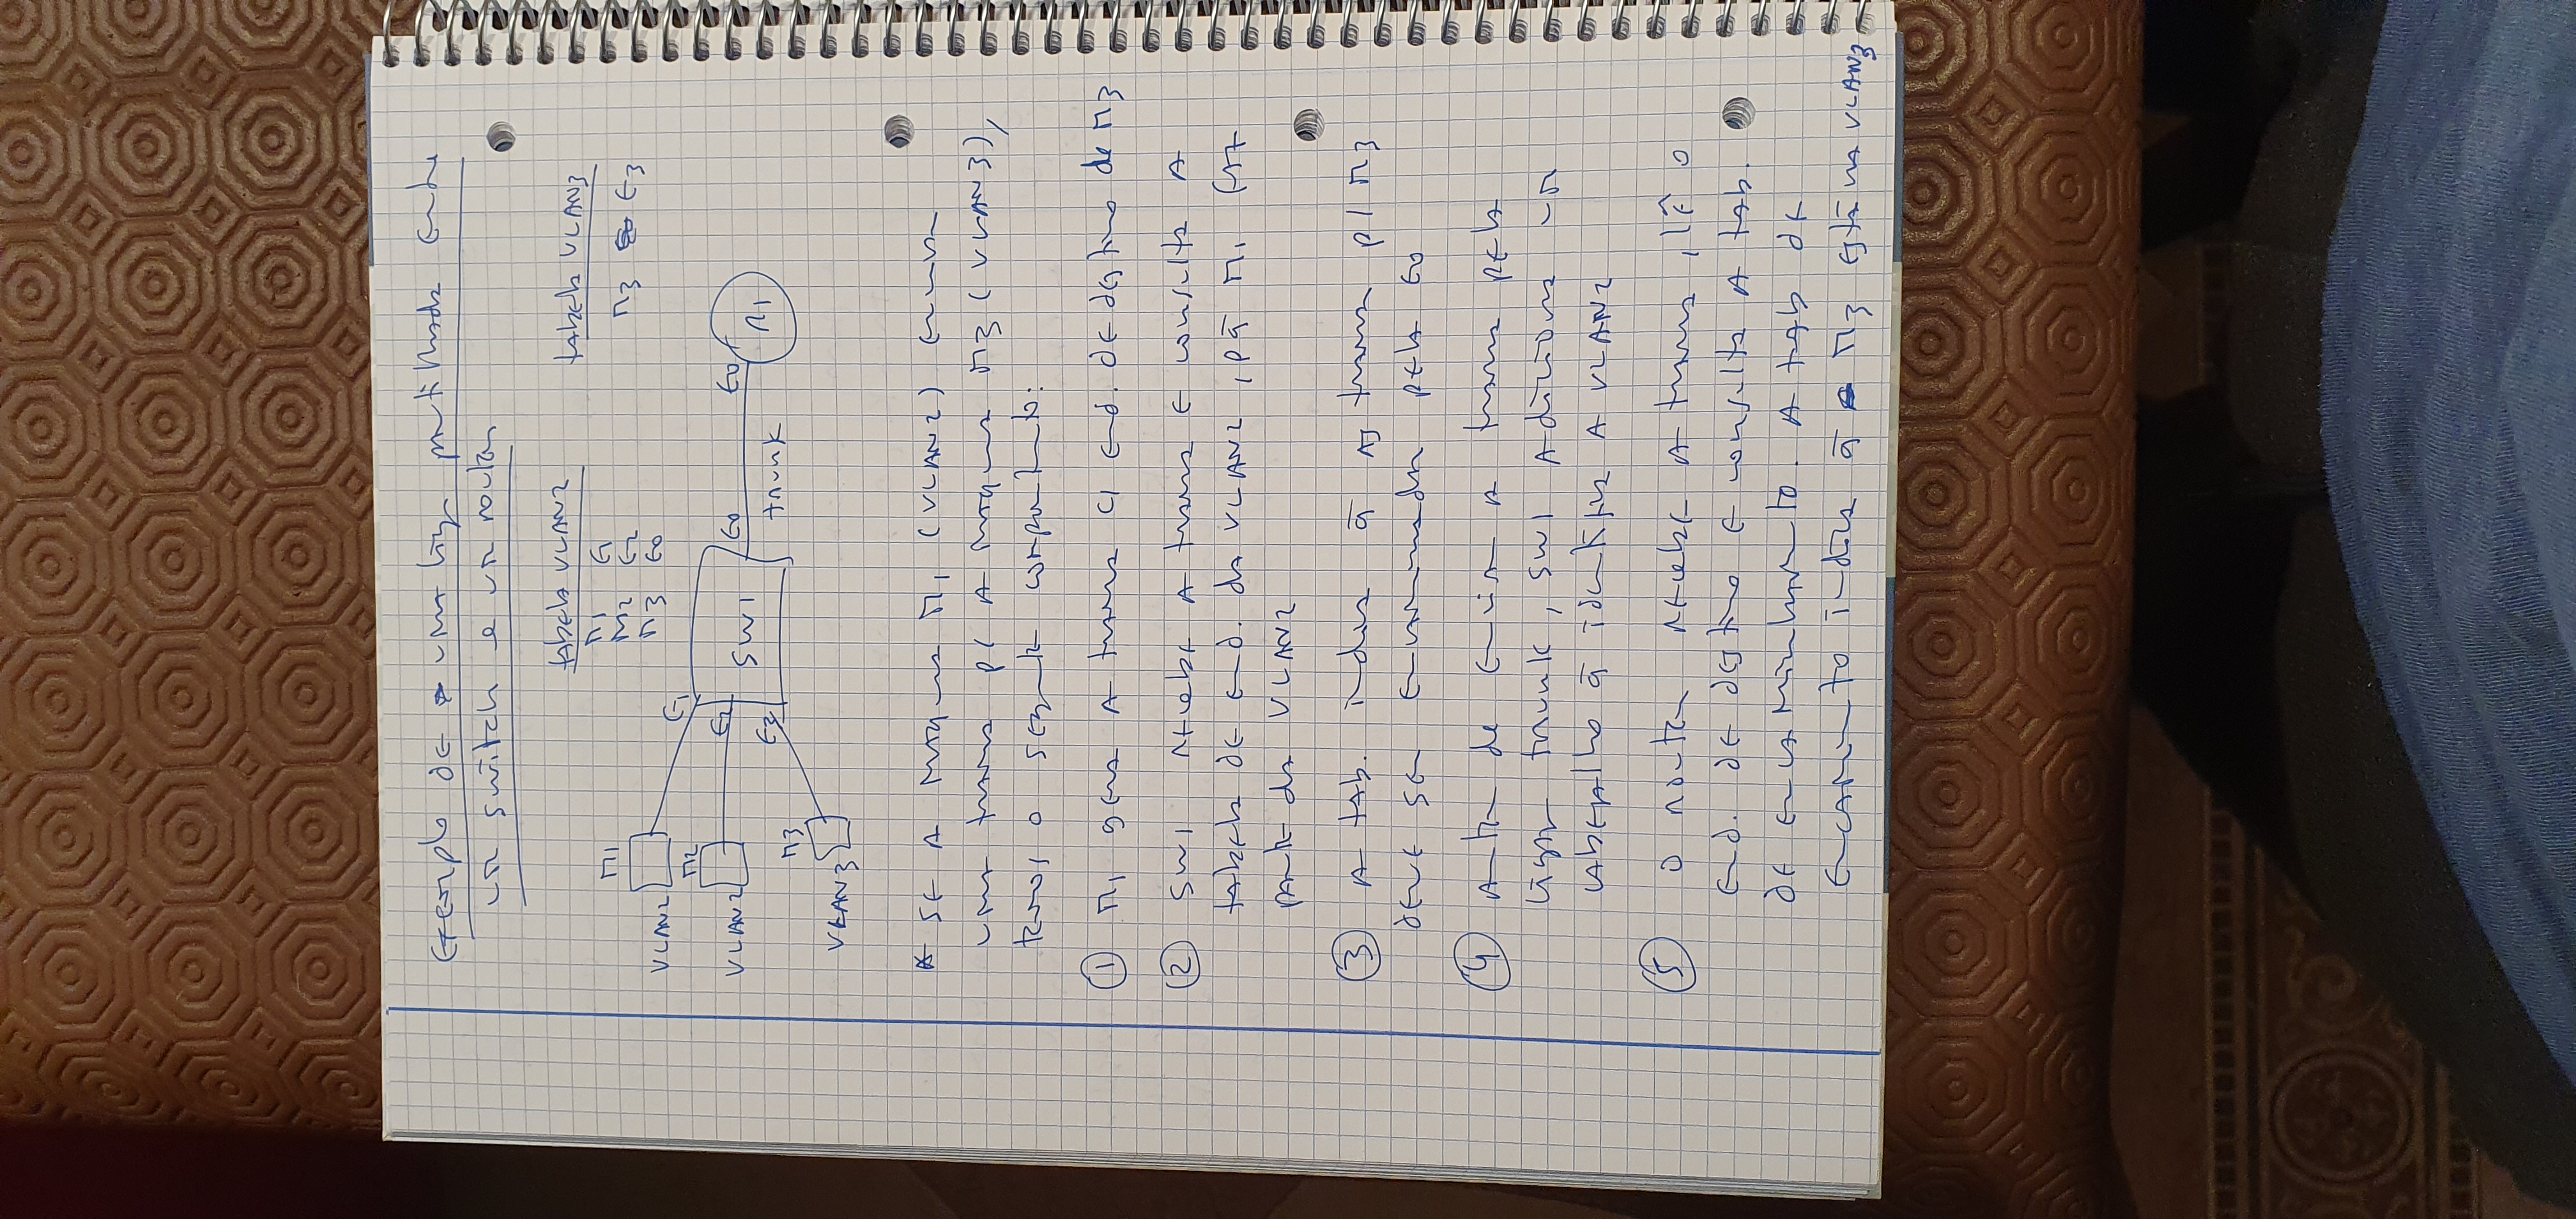 Exemplo de uma lig partilhada entre
um switch e um router
tabela VLAN2
M1 E1
M2 E2
M3 E0
tabela VLAN3
M3 E3
M1
VLAN2
M2
VLAN2
M3
VLAN3
E1
E2
E3
SW1
E0
trunk
E0
R1
* Se a máquina M1 (VLAN2) envia
uma trama p/ a máquina M3 (VLAN3),
temos o seguinte comportamento:
① M1 gera a trama c/ end. de destino de M3
② SW1 recebe a trama e consulta a
tabela de end. da VLAN2, pq M1 faz
parte da VLAN2
③ A tab. indica q as trama p/ M3
deve ser encaminhada pela E0
④ Antes de enviar a trama pela
ligação trunk, SW1 adiciona um
cabeçalho q identifica a VLAN2
⑤ O router recebe a trama, lê o
end. de destino e consulta a tab.
de encaminhamento. A tab de
encam-to indica q M3 está na VLAN3